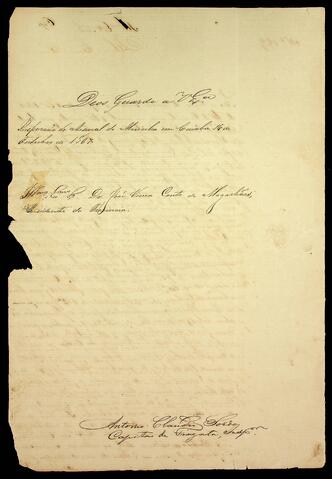 Deos Guarde a V Exª
Inspecção do Arsenal de Marinha em Cuiabá 16 de
Outubro de 1867.
Illmo. Exmo. Sr. Dr. José Vieira Couto de Magalhães,
Presidente da Provincia.
Antonio Claudio Soido
Capitão de Fragata, Inspor.